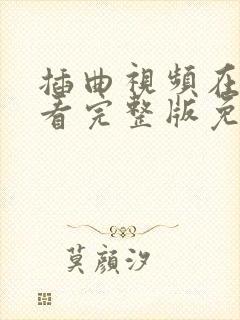 插曲視頻在
看完整版免
莫顏汐